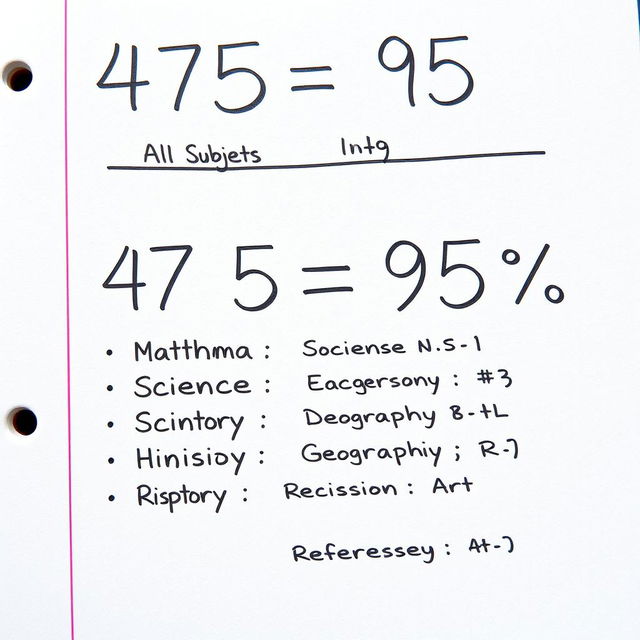 475 = 95
All Subjets Intg
47 5 = 95%
• Matthma : Sociense N.S-1
• Science : Eacgersony : #3
• Scintory : Deography 8-tL
• Hinisioy : Geographiy ; R-7
• Risptory : Recission : Art
Referessey : At-7